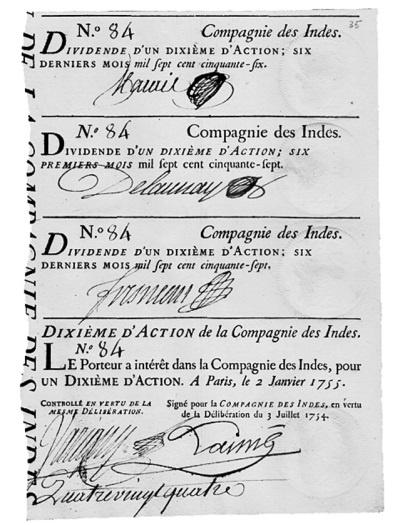 35
N.º 84 Compagnie des Indes.
DIVIDENDE D'UN DIXIÈME D'ACTION; SIX
DERNIERS MOIS mil sept cent cinquante-six.
N.º 84 Compagnie des Indes.
DIVIDENDE D'UN DIXIÈME D'ACTION; SIX
PREMIERS MOIS mil sept cent cinquante-sept.
Delaunay
N.º 84 Compagnie des Indes.
DIVIDENDE D'UN DIXIÈME D'ACTION; SIX
DERNIERS MOIS mil sept cent cinquante-sept.
DIXIÈME D'ACTION de la Compagnie des Indes.
N.º 84
LE Porteur a intérêt dans la Compagnie des Indes, pour
UN DIXIÈME D'ACTION. A Paris, le 2 Janvier 1755.
CONTROLLÉ EN VERTU DE LA
MESME DÉLIBÉRATION.
Signé pour la COMPAGNIE DES INDES, en vertu
de la Délibération du 3 Juillet 1754.
Quatrevingtquatre